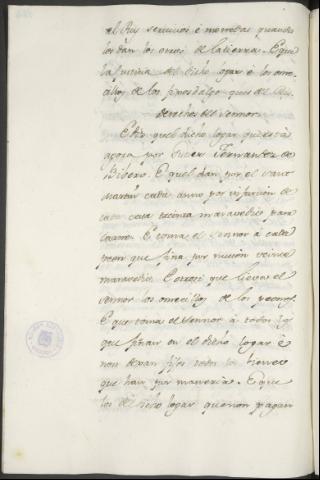 al Rey servicios é monedas quando
los dan los otros de la tierra. E que
la justicia del dicho logar é los ome-
cillos de los fijosdalgo que es del Rey.
Derechos del Sennor.
E dis quel dicho logar que está
agora por Ferrer Fernandez de
Bibero. E quel dan por el Sant
Martin cada anno por infurcion de
cada casa treinta maravedis para
carne. E toma el sennor á cada
peon que fina por nuncion veinte
maravedis. E otrosi que lieva el
sennor los omecillos de los pecheros.
E que toma el sennor á todos los
que finan en el dicho logar é
non dexan fijos todos los bienes
que han por maneria. E que
los del dicho logar que non pagan